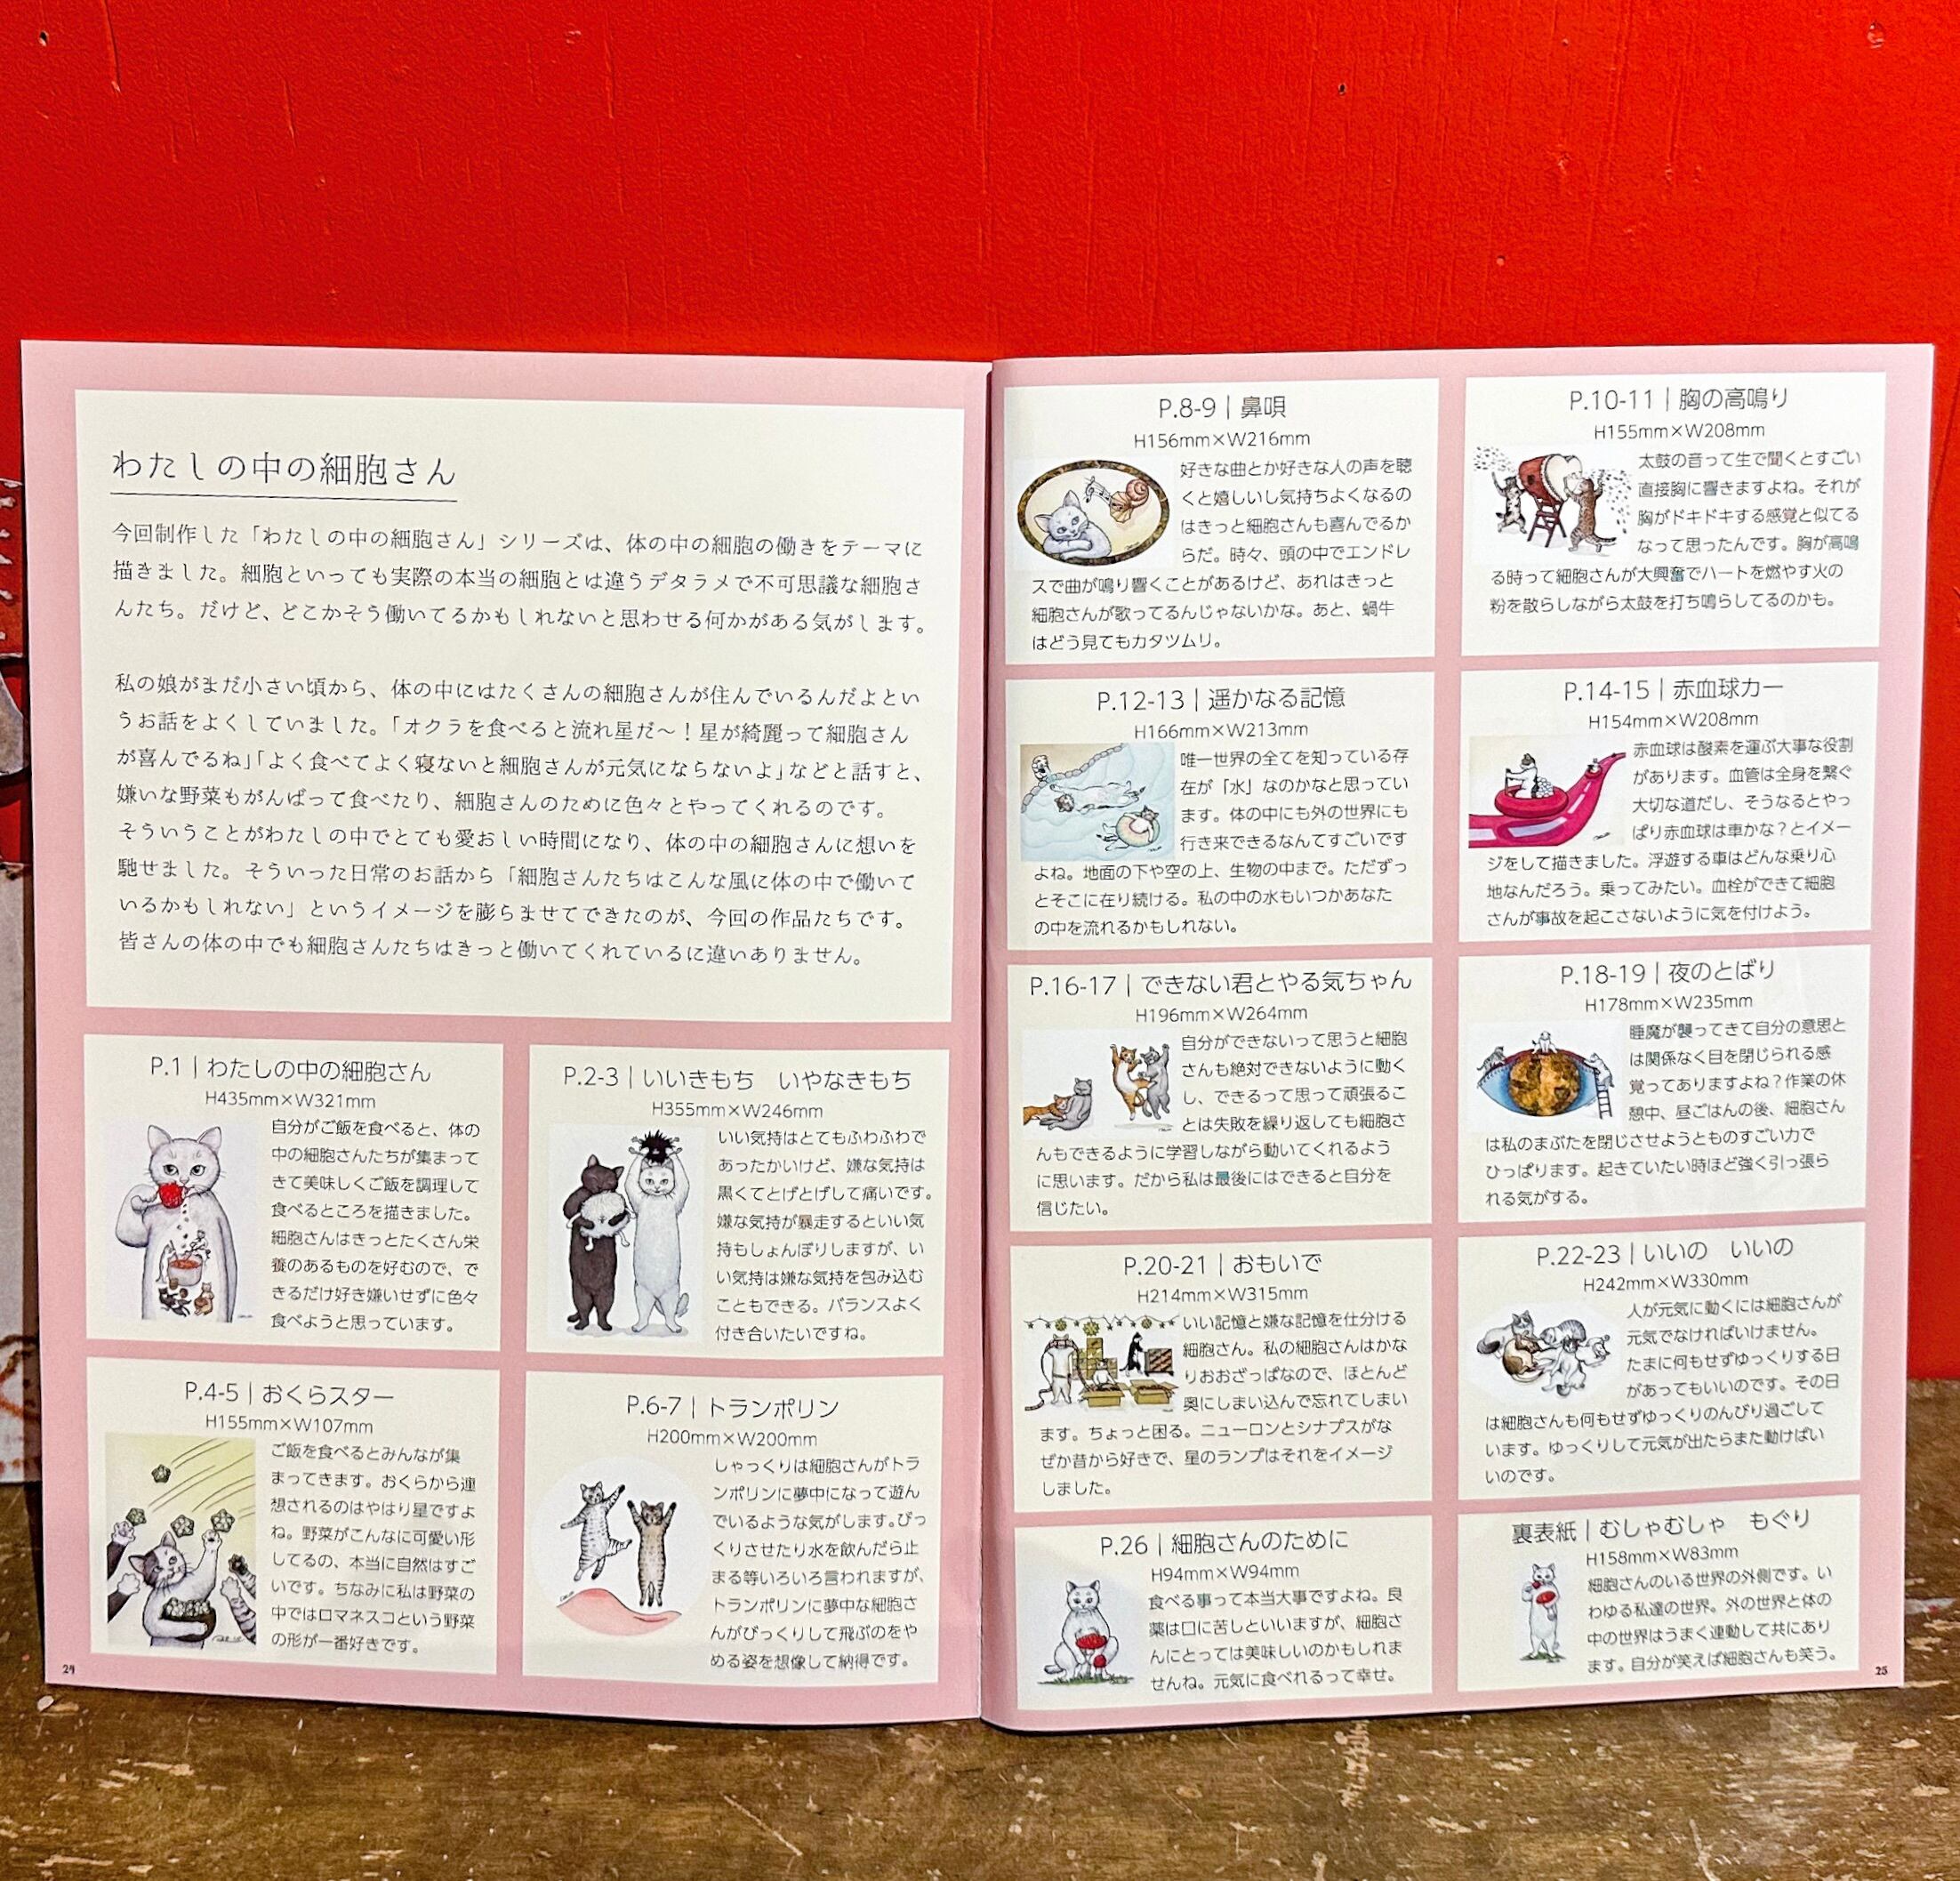 わたしの中の細胞さん
今回制作した「わたしの中の細胞さん」シリーズは、体の中の細胞の働きをテーマに
描きました。細胞といっても実際の本当の細胞とは違うデタラメで不可思議な細胞さ
んたち。だけど、どこかそう働いてるかもしれないと思わせる何かがある気がします。
私の娘がまだ小さい頃から、体の中にはたくさんの細胞さんが住んでいるんだよとい
うお話をよくしていました。「オクラを食べると流れ星だ〜！星が綺麗って細胞さん
が喜んでるね」「よく食べてよく寝ないと細胞さんが元気にならないよ」などと話すと、
嫌いな野菜もがんばって食べたり、細胞さんのために色々とやってくれるのです。
そういうことがわたしの中でとても愛おしい時間になり、体の中の細胞さんに想いを
馳せました。そういった日常のお話から「細胞さんたちはこんな風に体の中で働いて
いるかもしれない」というイメージを膨らませてできたのが、今回の作品たちです。
皆さんの体の中でも細胞さんたちはきっと働いてくれているに違いありません。
P.1｜わたしの中の細胞さん
H435mm×W321mm
自分がご飯を食べると、体の
中の細胞さんたちが集まって
きて美味しくご飯を調理して
食べるところを描きました。
細胞さんはきっとたくさん栄
養のあるものを好むので、で
きるだけ好き嫌いせずに色々
食べようと思っています。
P.2-3｜いいきもち　いやなきもち
H355mm×W246mm
いい気持はとてもふわふわで
あったかいけど、嫌な気持は
黒くてとげとげして痛いです。
嫌な気持が暴走するといい気
持もしょんぼりしますが、い
い気持は嫌な気持を包み込む
こともできる。バランスよく
付き合いたいですね。
P.4-5｜おくらスター
H155mm×W107mm
ご飯を食べるとみんなが集
まってきます。おくらから連
想されるのはやはり星ですよ
ね。野菜がこんなに可愛い形
してるの、本当に自然はすご
いです。ちなみに私は野菜の
中ではロマネスコという野菜
の形が一番好きです。
P.6-7｜トランポリン
H200mm×W200mm
しゃっくりは細胞さんがトラ
ンポリンに夢中になって遊ん
でいるような気がします。びっ
くりさせたり水を飲んだら止
まる等いろいろ言われますが、
トランポリンに夢中な細胞さ
んがびっくりして飛ぶのをや
める姿を想像して納得です。
24
P.8-9｜鼻唄
H156mm×W216mm
好きな曲とか好きな人の声を聴
くと嬉しいし気持ちよくなるの
はきっと細胞さんも喜んでるか
らだ。時々、頭の中でエンドレ
スで曲が鳴り響くことがあるけど、あれはきっと
細胞さんが歌ってるんじゃないかな。あと、蝸牛
はどう見てもカタツムリ。
P.10-11｜胸の高鳴り
H155mm×W208mm
太鼓の音って生で聞くとすごい
直接胸に響きますよね。それが
胸がドキドキする感覚と似てる
なって思ったんです。胸が高鳴
る時って細胞さんが大興奮でハートを燃やす火の
粉を散らしながら太鼓を打ち鳴らしてるのかも。
P.12-13｜遥かなる記憶
H166mm×W213mm
唯一世界の全てを知っている存
在が「水」なのかなと思ってい
ます。体の中にも外の世界にも
行き来できるなんてすごいです
よね。地面の下や空の上、生物の中まで。ただずっ
とそこに在り続ける。私の中の水もいつかあなた
の中を流れるかもしれない。
P.14-15｜赤血球カー
H154mm×W208mm
赤血球は酸素を運ぶ大事な役割
があります。血管は全身を繋ぐ
大切な道だし、そうなるとやっ
ぱり赤血球は車かな？とイメー
ジをして描きました。浮遊する車はどんな乗り心
地なんだろう。乗ってみたい。血栓ができて細胞
さんが事故を起こさないように気を付けよう。
P.16-17｜できない君とやる気ちゃん
H196mm×W264mm
自分ができないって思うと細胞
さんも絶対できないように動く
し、できるって思って頑張るこ
とは失敗を繰り返しても細胞さ
んもできるように学習しながら動いてくれるよう
に思います。だから私は最後にはできると自分を
信じたい。
P.18-19｜夜のとばり
H178mm×W235mm
睡魔が襲ってきて自分の意思と
は関係なく目を閉じられる感
覚ってありますよね？作業の休
憩中、昼ごはんの後、細胞さん
は私のまぶたを閉じさせようとものすごい力で
ひっぱります。起きていたい時ほど強く引っ張ら
れる気がする。
P.20-21｜おもいで
H214mm×W315mm
いい記憶と嫌な記憶を仕分ける
細胞さん。私の細胞さんはかな
りおおざっぱなので、ほとんど
奥にしまい込んで忘れてしまい
ます。ちょっと困る。ニューロンとシナプスがな
ぜか昔から好きで、星のランプはそれをイメージ
しました。
P.22-23｜いいの　いいの
H242mm×W330mm
人が元気に動くには細胞さんが
元気でなければいけません。
たまに何もせずゆっくりする日
があってもいいのです。その日
は細胞さんも何もせずゆっくりのんびり過ごして
います。ゆっくりして元気が出たらまた動けばい
いのです。
P.26｜細胞さんのために
H94mm×W94mm
食べる事って本当大事ですよね。良
薬は口に苦しといいますが、細胞さ
んにとっては美味しいのかもしれま
せんね。元気に食べれるって幸せ。
裏表紙｜むしゃむしゃ　もぐり
H158mm×W83mm
細胞さんのいる世界の外側です。い
わゆる私達の世界。外の世界と体の
中の世界はうまく連動して共にあり
ます。自分が笑えば細胞さんも笑う。
25